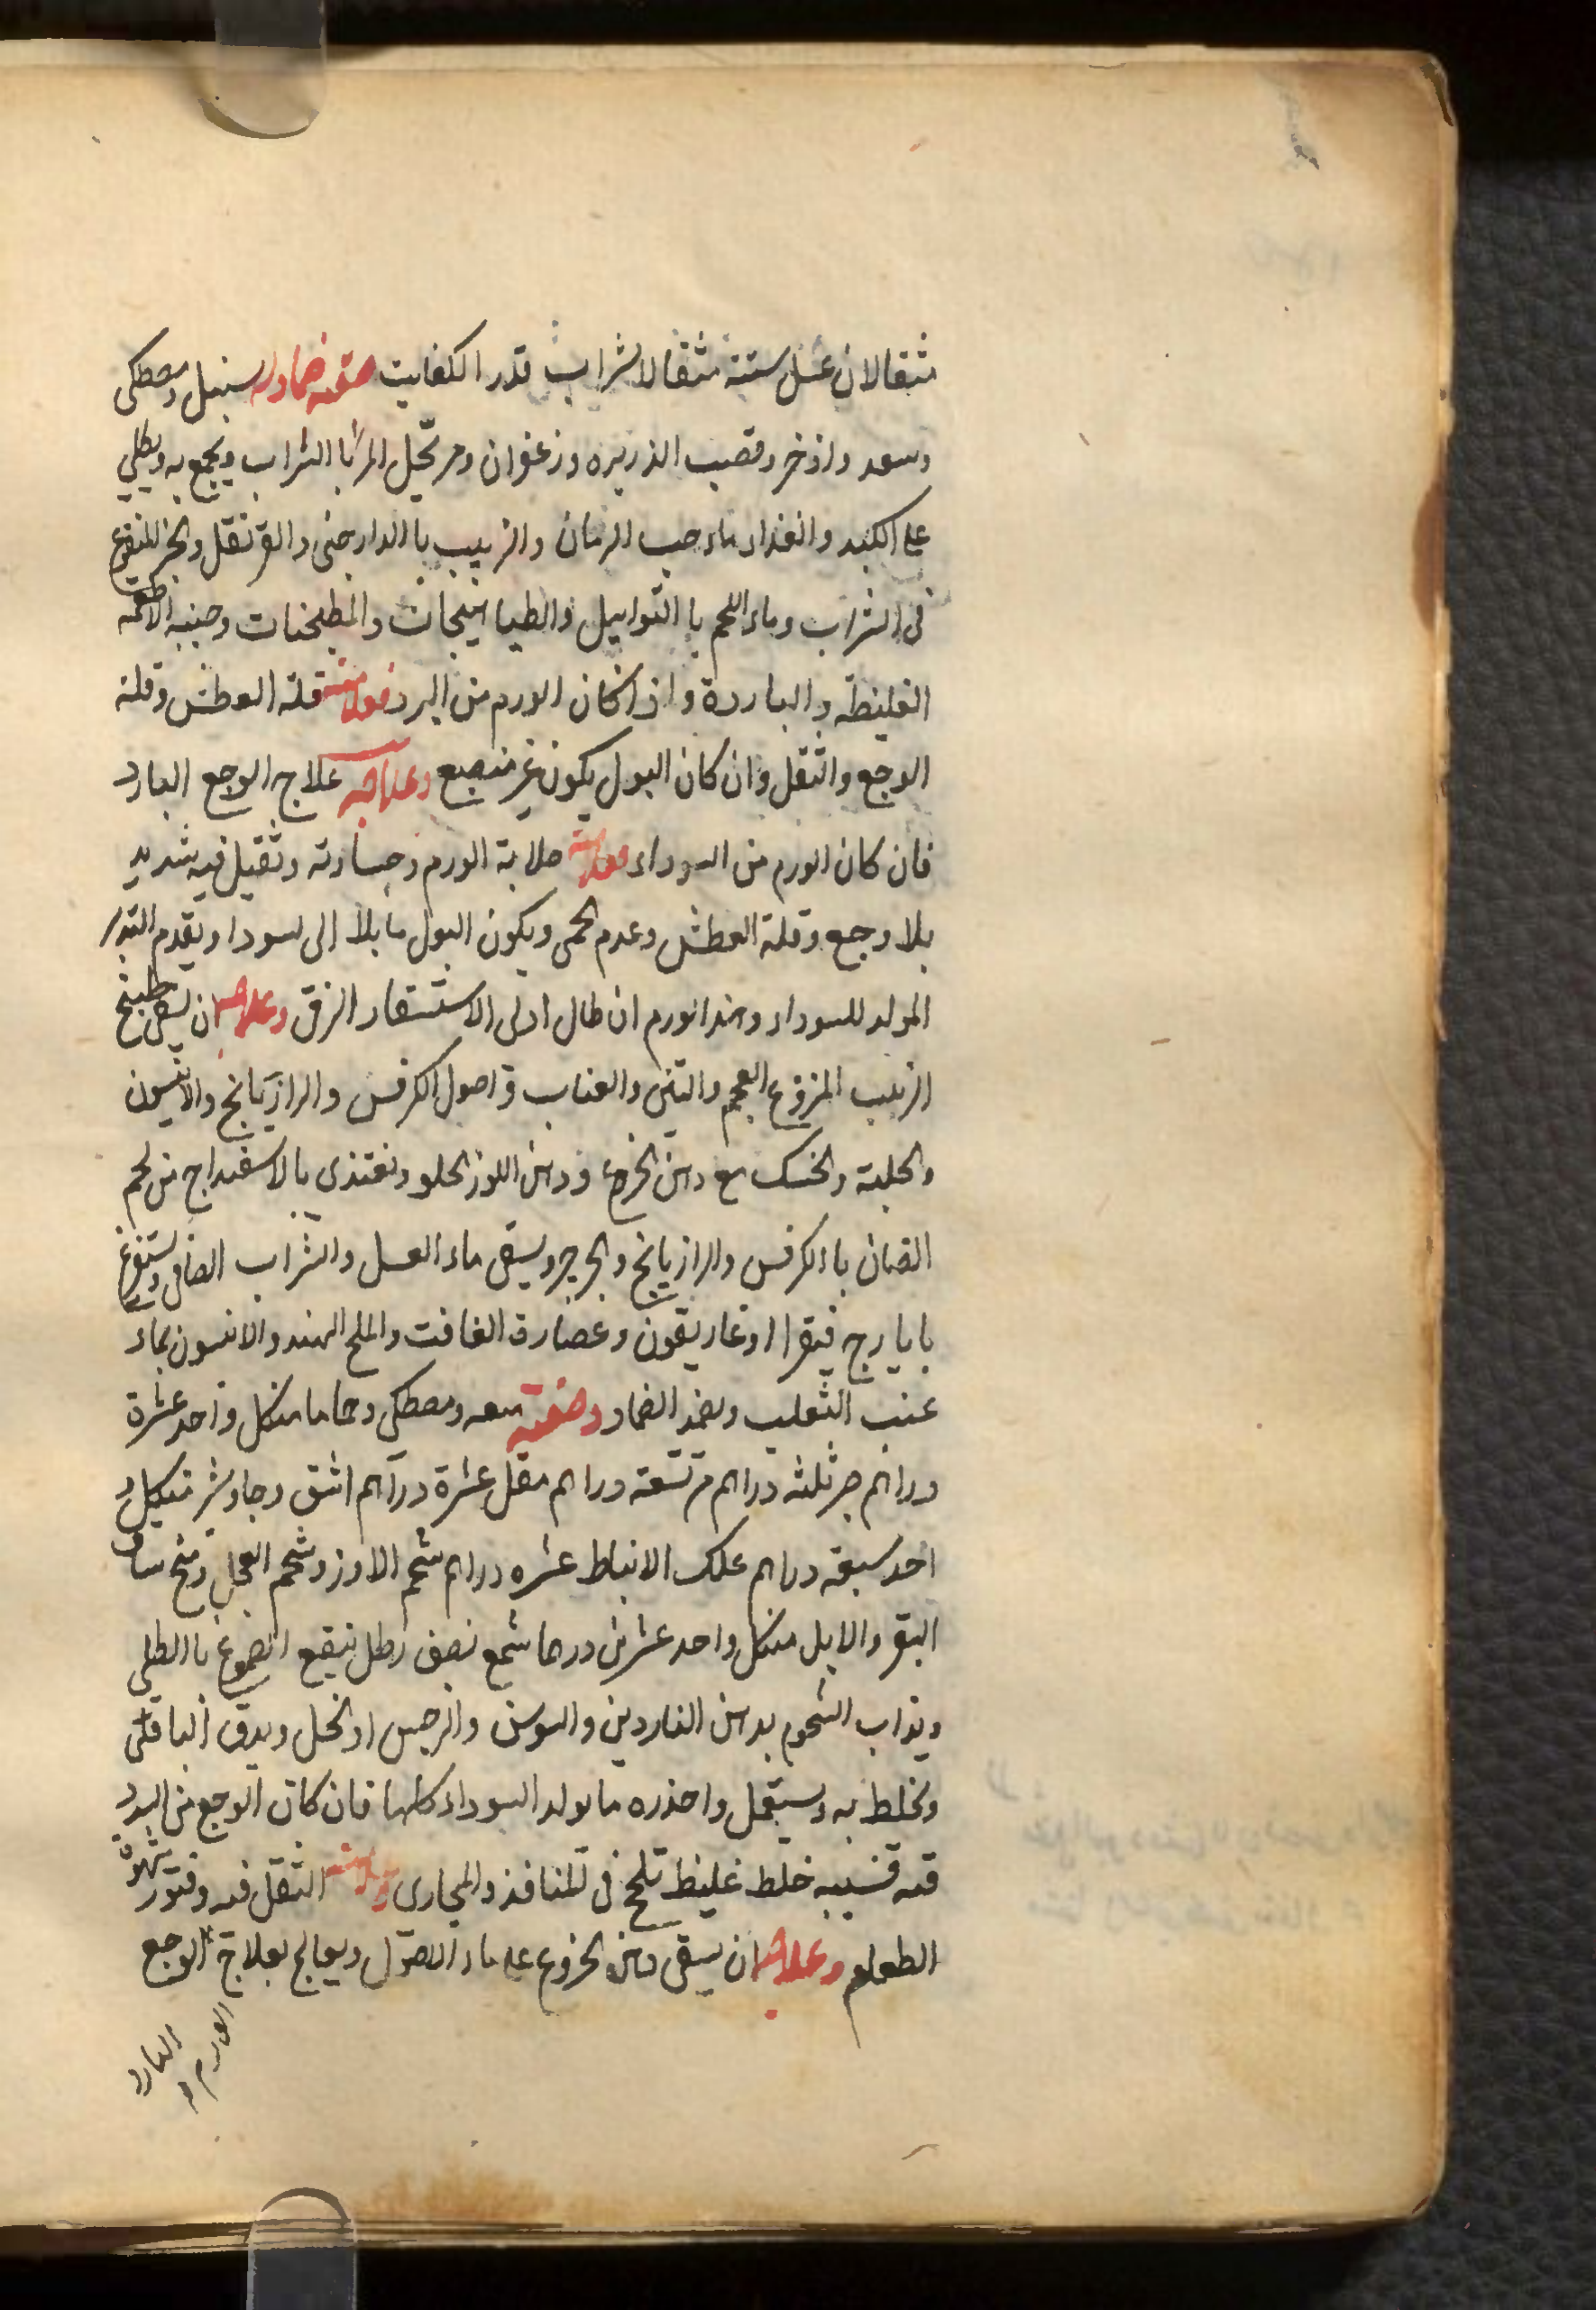 مثقالان عسل ستته مثقالا شراب قدر الكفايت صفته ضماد له سنبل ومصطكى
وسعد واذخر وقصب الذريره وزعفران ومر يحل المر با الشراب ويجمع به ويطلي
على الكبد والغذاء ماء حب الرمان والزبيب با الدارجنى والقرنفل والخبز المنقوع
فى الشراب وماء اللحم با التوابيل والطياهيجات والمطجنات وجنبه الاطعمه
الغليظه والباردة واذا كان الورم من البرد فعلامته قلة العطش وقلة
الوجع والثقل وان كان البول يكون غير منصبع وعلاجه علاج الوجع البارد
فان كان الورم من السوداء فعلامته صلابة الورم وجساوته وثقيل فيه شديد
بلا وجع وقلة العطش وعدم الحمى ويكون البول مايلا الى سودا ويقدم التدبر
المولد للسوداء وهذا الورم ان طال ادى الاستسقاء الزقى وعلاجه ان يسقى طبيخ
الزبيب المنزوع العجم والتين والعناب و اصول الكرفس والرازيانج والانيسون
والحلبة والحسك مع دهن الخروع ودهن اللوز الحلو وتغتذى بالاسفيداج من لحم
الضان با الكرفس والرازيانج والجرجير ويسقى ماء العسل والشراب الصافى ويستفرغ
بايارج فيقرا او غاريقون وعصارة الغافت والملح الهند والانسون بماء
عنب الثعلب ويضمد الضماد وصفته سعد ومصطكى وحاما من كل واحد عشرة
دراهم صبر ثلثه دراهم مر تسعة دراهم مقل عشرة دراهم اشق وجاوشر من كل و
احد سبعة دراهم علك الانباط عشره دراهم شحم الاوز وشحم العجل ومخ ساق
البقر والابل من كل واحد عشرين درهما شمع نصف رطل ينقع الصموغ با الطلى
ويذاب الشحوم بدهن الناردين والسوسن والنرجس او الخل ويدق الباقى
ويخلط به ويستعمل واحذره ما يولد السوداء كلها فان كان الوجع من البرد
فيه فسببه خلط غليظ تلحج فى المنافذ والمجارى وعلامته الثقل فيه وفتور شهوة
الطعام وعلاجه ان يسقى دهن الخروع على ماء الاصول ويعالج بعلاج الوجع
الورم البارد